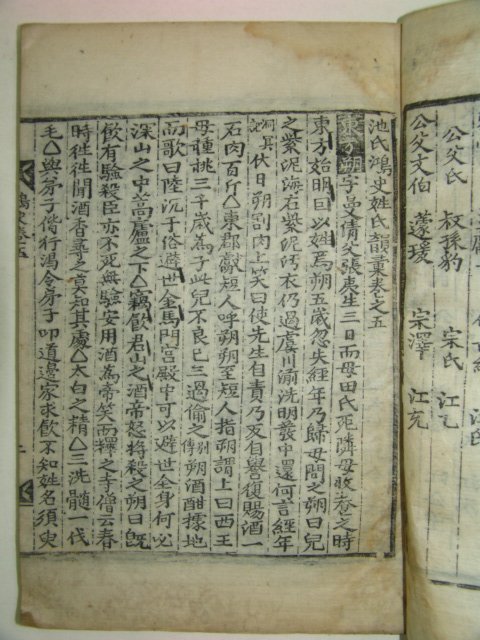 公父氏 叔孫豹 宋氏 江元
公父文伯 蘧瑗 宋澤 江充
池氏鴻史姓氏韻彙卷之五
東方朔字曼倩父張夷生三日而母田氏死隣母收養之時
東方始明因以姓焉朔五歲忽失經年乃歸母問之朔曰兒
之紫泥海有紫泥汚衣仍過虞川湔洗朝發中還何言經年
洞冥記伏日朔割肉上笑曰使先生自責乃反自譽復賜酒一
石肉百斤△東郡獻短人呼朔朔至短人指朔謂上曰西王
母種桃三千歲爲子此兒不良已三過偷之別傳朔酒酣據地
而歌曰陸沉于俗避世金馬門宮殿中可以避世全身何必
深山之中蒿廬之下△竊飮君山之酒帝怒將殺之朔曰旣
飮有驗殺臣亦不死無驗安用酒爲帝笑而釋之寺僧云春
時徃徃聞酒香尋之莫知其處△太白之精△三洗髓一伐
毛△與弟子偕行渴令弟子叩道邊家求飮不知姓名須臾
鴻史卷五